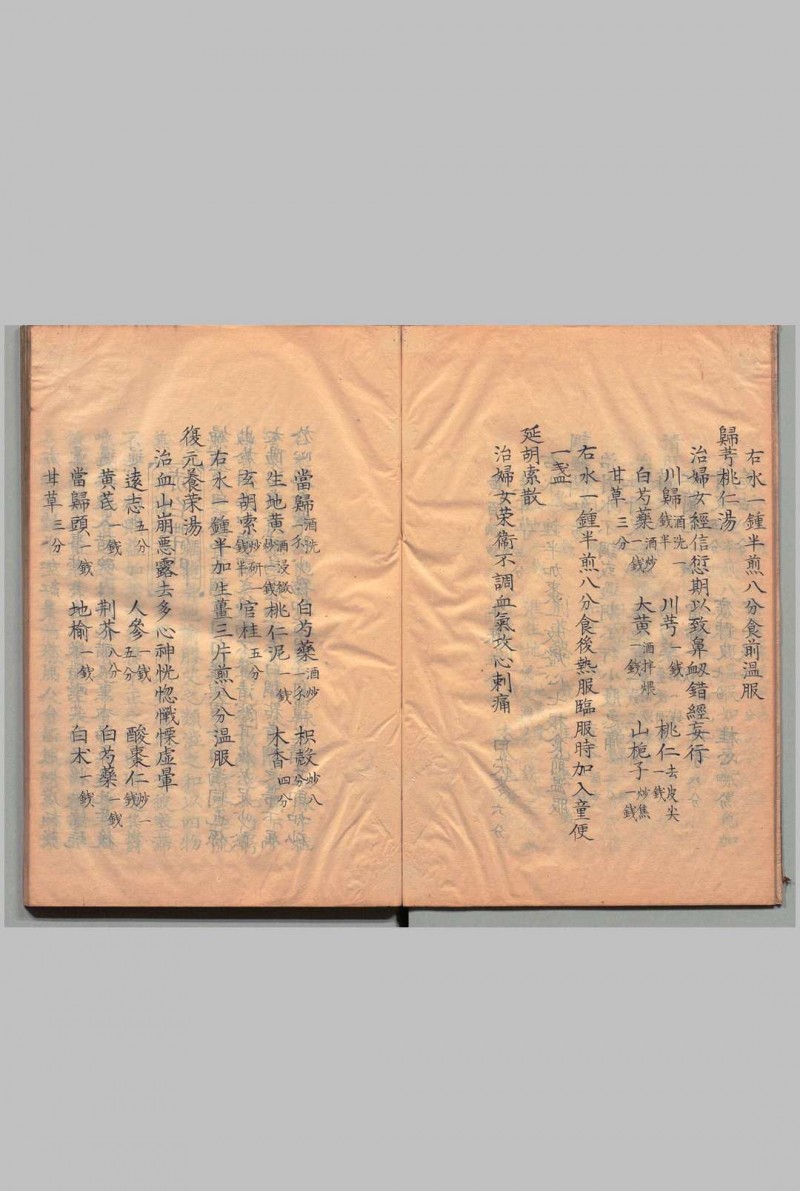 右水一鍾半煎八分食前温服
歸芎桃仁湯
治婦女經信愆期以致鼻衂錯經妄行
川歸酒洗一錢半 川芎一錢 桃仁去皮尖一錢
白芍藥酒炒一錢 大黃酒拌煨一錢 山梔子炒焦一錢
甘草三分
右水一鍾半煎八分食後熱服臨服時加入童便
一盞
延胡索散
治婦女荣衛不調血氣攻心刺痛
當歸酒洗一錢 白芍藥酒炒一錢 枳殼炒八分
生地黃酒浸微炒一錢 桃仁泥一錢 木香四分
玄胡索炒研錢半 官桂五分
右水一鍾半加生薑三片煎八分温服
復元養荣湯
治血山崩悪露去多心神恍惚戰慄虛暈
遠志五分 人參一錢五分 酸棗仁炒一錢
黃芪一錢 荆芥八分 白芍藥一錢
當歸頭一錢 地榆一錢 白术一錢
甘草三分